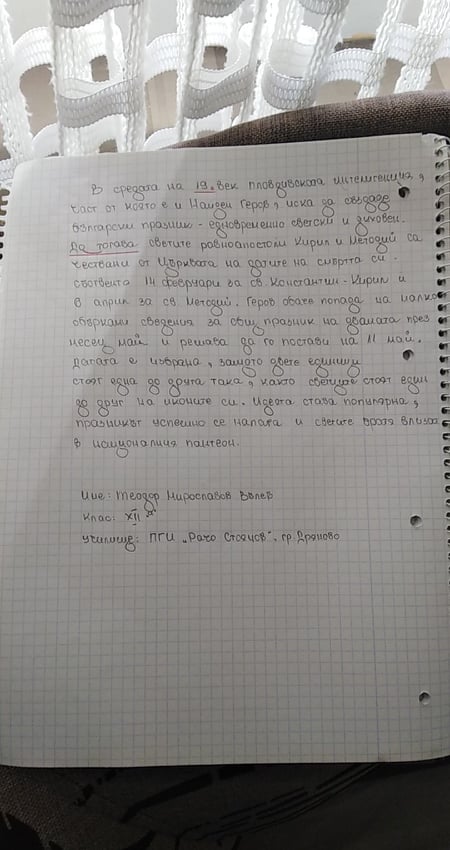 В средата на 19. век пловдивската интелигенция,
част от която е и Найден Геров, иска да създаде
български празник - едновременно светски и духовен.
До тогава светите равноапостоли Кирил и Методий са
чествани от Църквата на датите на смъртта си -
съответно 14 февруари за св. Константин-Кирил и
6 април за св. Методий. Геров обаче попада на малко
объркани сведения за общ празник на двамата през
месец май и решава да го постави на 11 май.
Датата е избрана, защото двете единици
стоят една до друга така, както светците стоят един
до друг на иконите си. Идеята става популярна,
празникът успешно се налага и светите братя влизат
в националния пантеон.
Име: Теодор Мирославов Вълев
Клас: XII
Училище: ПГИ "Рачо Стоянов", гр. Дряново